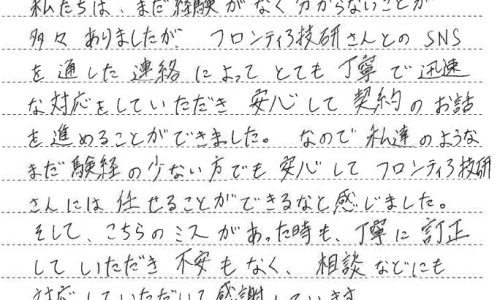 私たちは、まだ経験がなく分からないことが
多々ありましたが、フロンティア技研さんとのSNS
を通した連絡によってとても丁寧で迅速
な対応をしていただき安心して契約のお話
を進めることができました。なので私達のような
まだ験経の少ない方でも安心してフロンティア技研
さんには任せることができるなと感じました。
そして、こちらのミスがあった時も、丁寧に訂正
していただき不安もなく、相談などにも
対応していただいて感謝しています